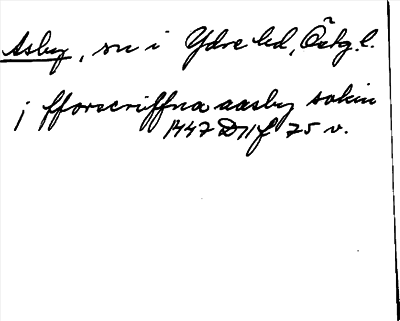 Asby, sn i Ydre hd, Östg.l.
j fforscriffna aasby sokin
1447 D 11 f 75 v.